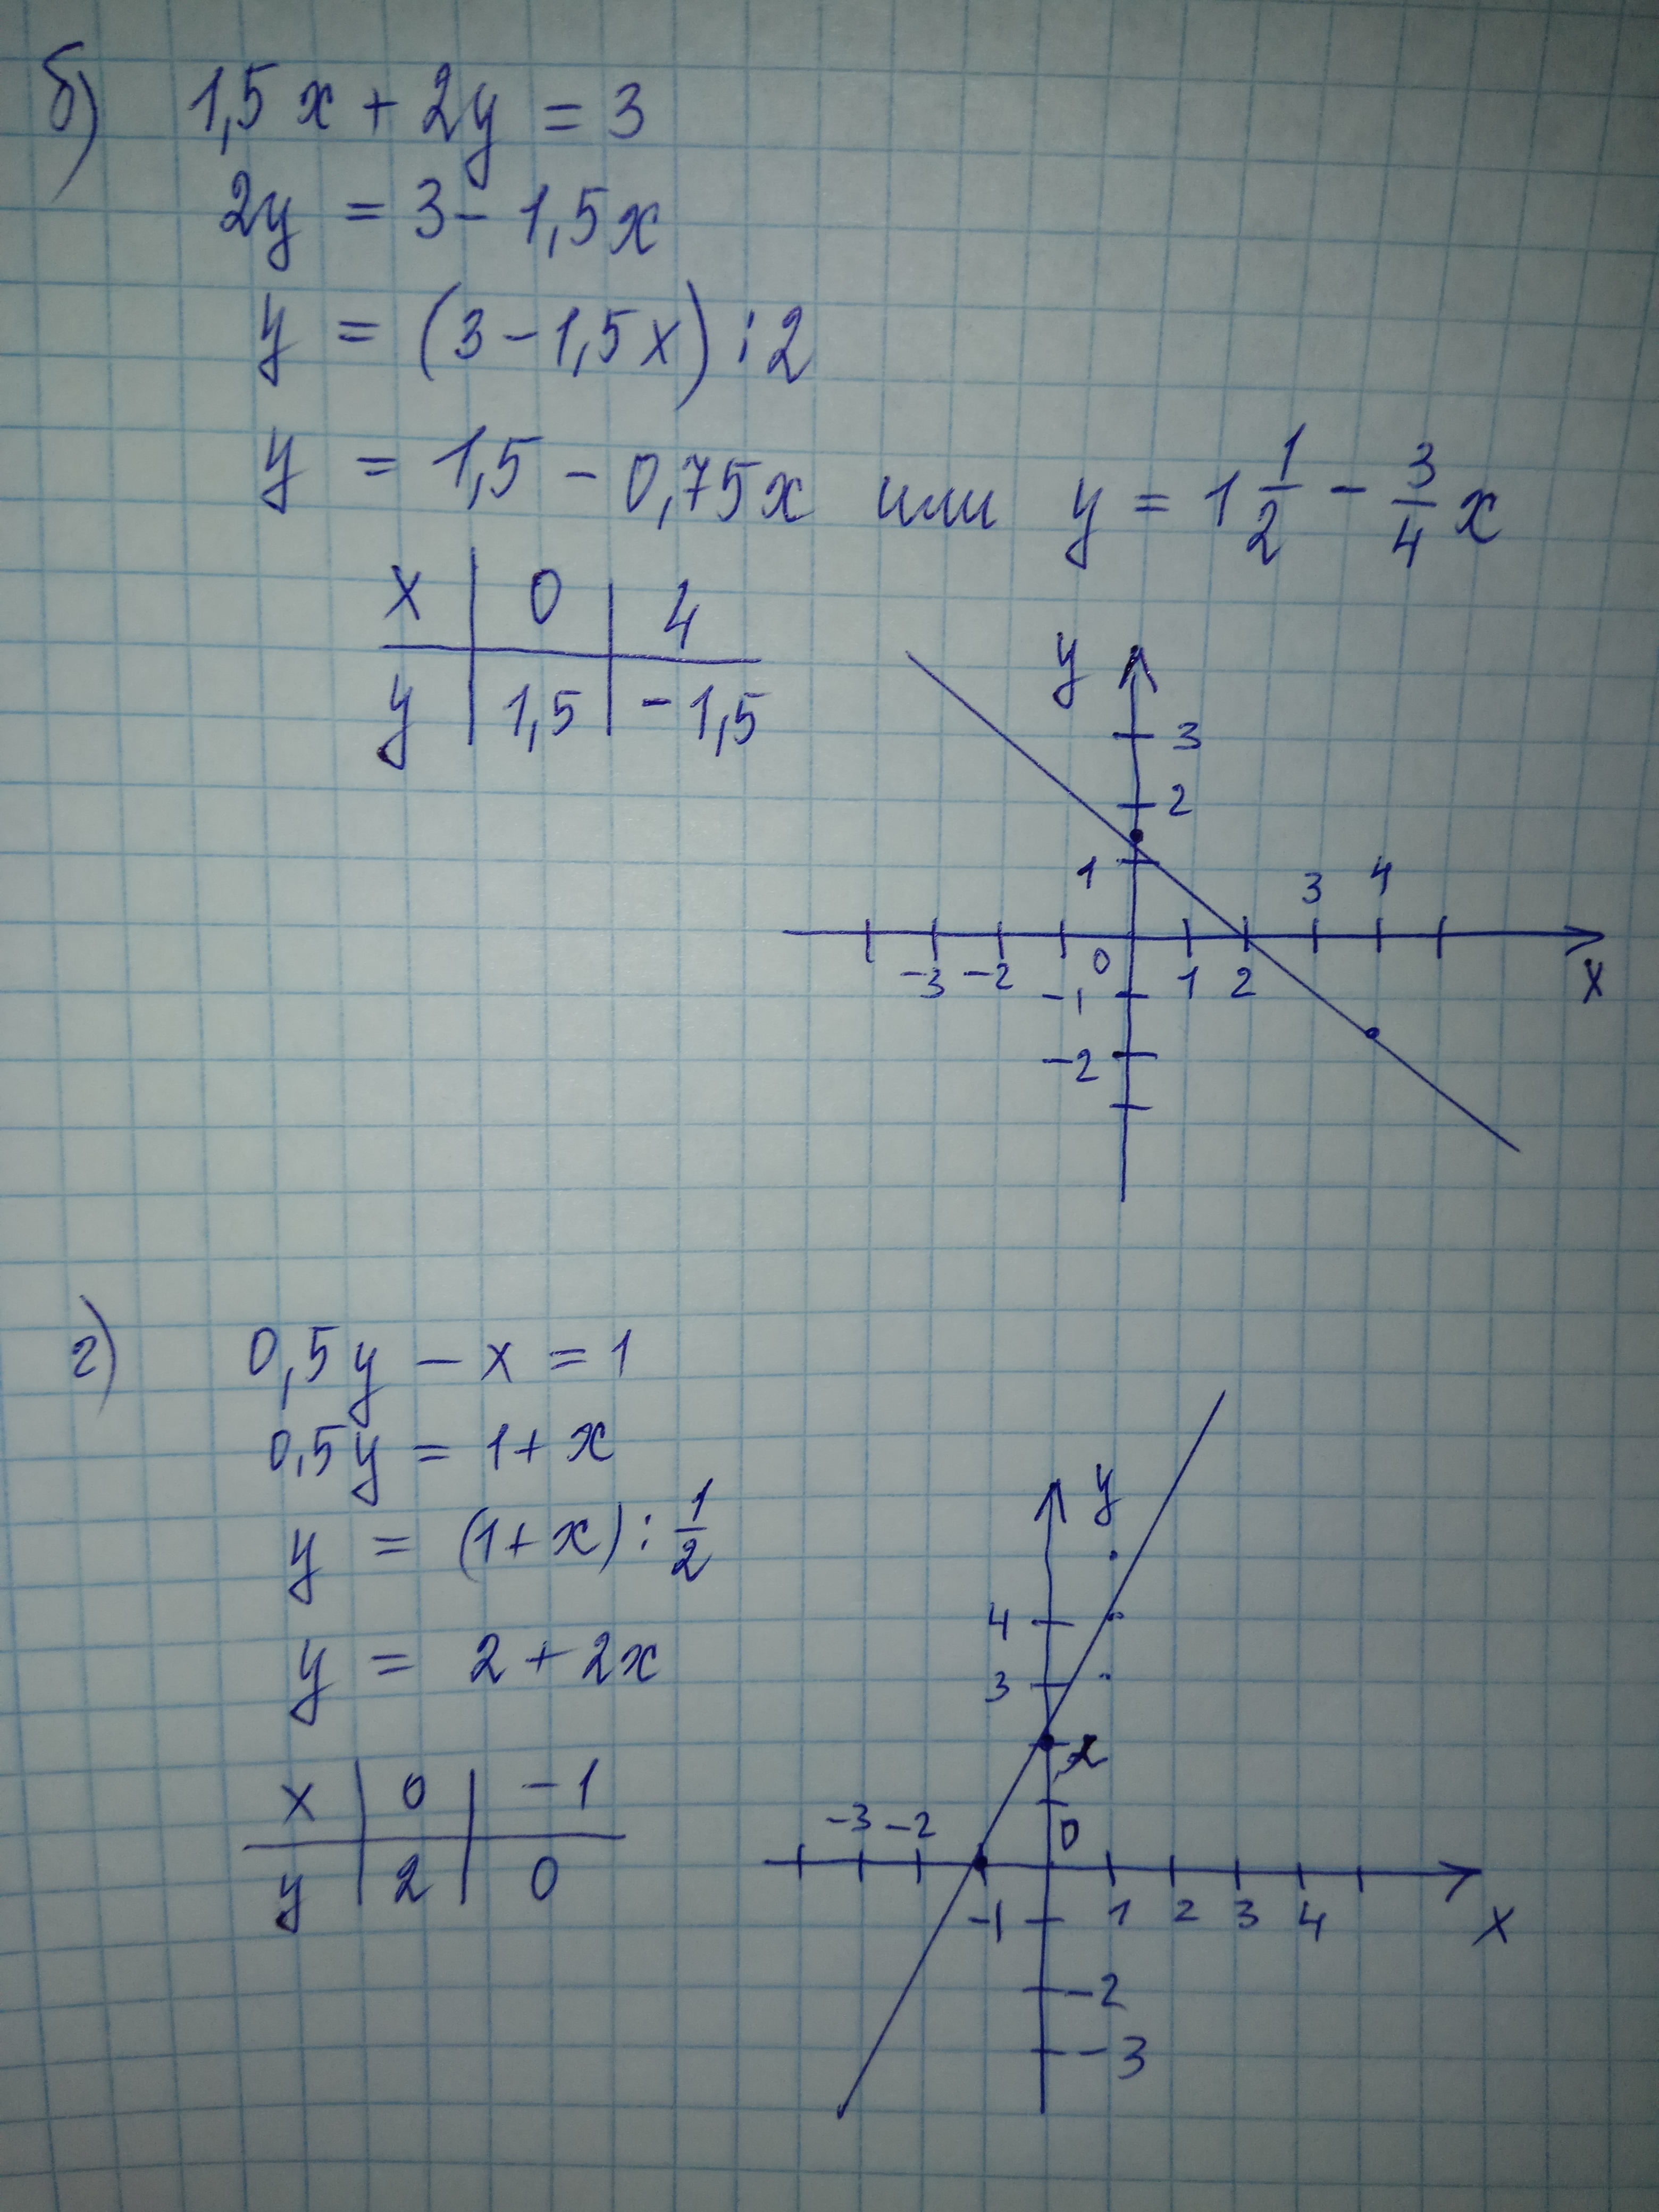 б) 1,5x + 2y = 3
2y = 3 - 1,5x
y = (3 - 1,5x) : 2
y = 1,5 - 0,75x или y = 1 1/2 - 3/4 x
x | 0 | 4
y | 1,5 | -1,5
y
3
2
1
3 4
-3 -2 0 1 2 x
-1
-2
г) 0,5y - x = 1
0,5y = 1 + x
y = (1 + x) : 1/2
y = 2 + 2x
x | 0 | -1
y | 2 | 0
y
4
3
2
-3 -2 0
-1 1 2 3 4 x
-2
-3